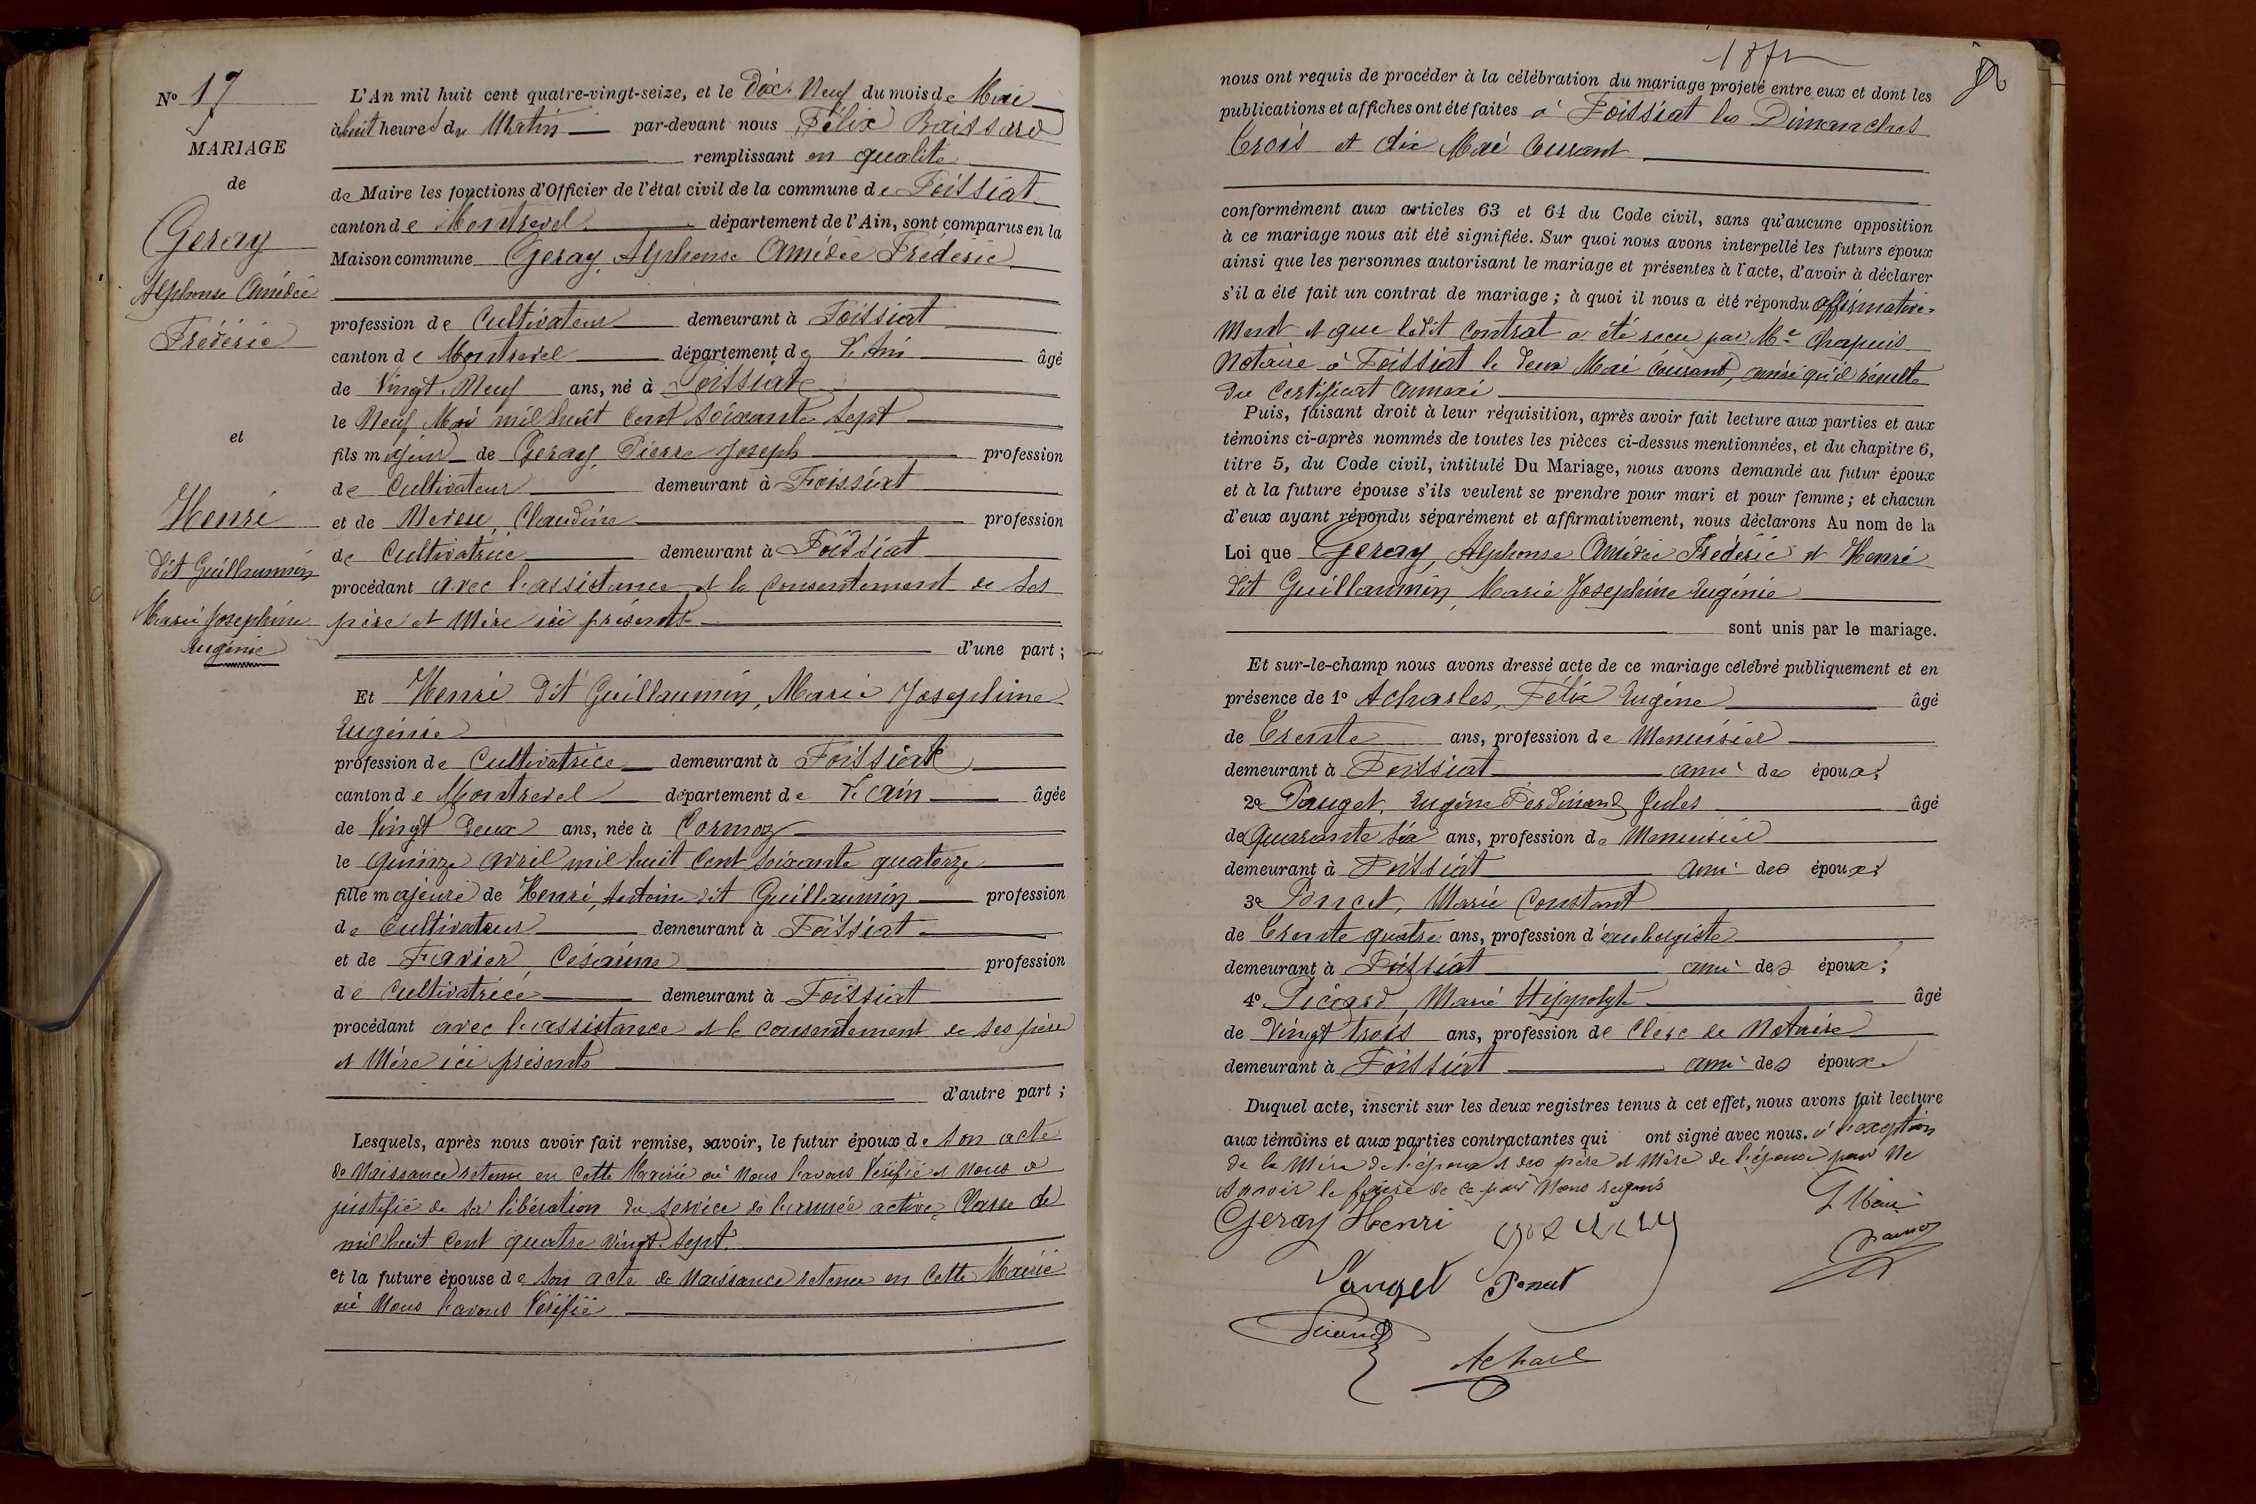 Nº 17
MARIAGE
de
Geray
Alphonse Amédée
Frédéric
et
Henri
dit Guillaumin
Marie Josephine
Eugénie
L'An mil huit cent quatre-vingt-seize, et le Dix-Neuf du mois de Mai
à huit heures du Matin par-devant nous Félix
remplissant en qualité
de Maire les fonctions d'Officier de l'état civil de la commune de Foissiat
canton de Montrevel département de l'Ain, sont comparus en la
Maison commune Geray, Alphonse Amédée Frédéric
profession de Cultivateur demeurant à Foissiat
canton de Montrevel département de L'Ain âgé
de Vingt-Neuf ans, né à Foissiat
le Neuf Mai mil huit cent soixante sept
fils majeur de Geray, Pierre Joseph profession
de Cultivateur demeurant à Foissiat
et de Claudine profession
de Cultivatrice demeurant à Foissiat
procédant avec l'assistance et le consentement de ses
père et Mère ici présents
d'une part ;
Et Henri dit Guillaumin, Marie Josephine
Eugénie
profession de Cultivatrice demeurant à Foissiat
canton de Montrevel département de L'Ain âgée
de Vingt Deux ans, née à Cormoz
le quinze avril mil huit cent soixante quatorze
fille majeure de Henri, Antoine dit Guillaumin profession
de Cultivateur demeurant à Foissiat
et de Favier, Césarine profession
de Cultivatrice demeurant à Foissiat
procédant avec l'assistance et le consentement de ses père
et Mère ici présents
d'autre part ;
Lesquels, après nous avoir fait remise, savoir, le futur époux de son acte
de Naissance retenu en cette Mairie où Nous l'avons Vérifié et Nous a
justifié de sa libération du service de l'armée active, Classe de
mil huit cent quatre vingt-sept.
et la future épouse de son acte de Naissance retenu en cette Mairie
où Nous l'avons Vérifié
nous ont requis de procéder à la célébration du mariage projeté entre eux et dont les
publications et affiches ont été faites à Foissiat les Dimanches
Trois et dix Mai Courant
conformément aux articles 63 et 64 du Code civil, sans qu'aucune opposition
à ce mariage nous ait été signifiée. Sur quoi nous avons interpellé les futurs époux
ainsi que les personnes autorisant le mariage et présentes à l'acte, d'avoir à déclarer
s'il a été fait un contrat de mariage ; à quoi il nous a été répondu affirmative-
ment et que ledit contrat a été reçu par Me Chapuis
Notaire à Foissiat le deux Mai courant, ainsi qu'il résulte
du Certificat annexé
Puis, faisant droit à leur réquisition, après avoir fait lecture aux parties et aux
témoins ci-après nommés de toutes les pièces ci-dessus mentionnées, et du chapitre 6,
titre 5, du Code civil, intitulé Du Mariage, nous avons demandé au futur époux
et à la future épouse s'ils veulent se prendre pour mari et pour femme ; et chacun
d'eux ayant répondu séparément et affirmativement, nous déclarons Au nom de la
Loi que Geray, Alphonse Amédée Frédéric et Henri
dit Guillaumin, Marie Josephine Eugénie
sont unis par le mariage.
Et sur-le-champ nous avons dressé acte de ce mariage célébré publiquement et en
présence de 1º Acharles, Félix Eugène âgé
de Trente ans, profession de Menuisier
demeurant à Foissiat ami des époux;
2º Pauget, Eugène Ferdinand Jules âgé
de quarante six ans, profession de Menuisier
demeurant à Foissiat ami des époux;
3º Poncet, Marie Constant
de Trente quatre ans, profession d'aubergiste
demeurant à Foissiat ami des époux;
4º Picard, Marie Hippolyte âgé
de Vingt trois ans, profession de Clerc de Notaire
demeurant à Foissiat ami des époux.
Duquel acte, inscrit sur les deux registres tenus à cet effet, nous avons fait lecture
aux témoins et aux parties contractantes qui ont signé avec nous. à l'exception
de la Mère de l'époux et des père et Mère de l'épouse pour Ne
savoir le faire de ce par Nous requis
Geray Henri
Pauget Poncet
Picard